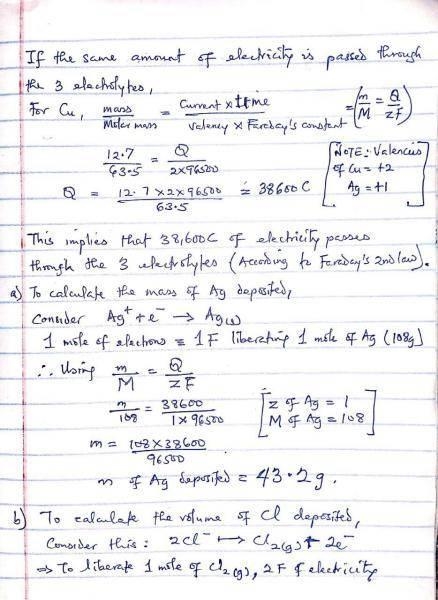 If the same amount of electricity is passed through
the 3 electrolytes,
For Cu, mass/Molar mass = Current x time/Valency x Faraday's constant = (m/M = Q/zF)
12.7/63.5 = Q/2x96500
Q = 12.7x2x96500/63.5 = 38600C
[NOTE: Valencies
of Cu = +2
Ag = +1]
This implies that 38,600C of electricity passes
through the 3 electrolytes (According to Faraday's 2nd law).
a) To calculate the mass of Ag deposited,
Consider Ag⁺ + e⁻ → Ag(s)
1 mole of electrons = 1F liberating 1 mole of Ag (108g)
∴ Using m/M = Q/zF
m/108 = 38600/1x96500
[z of Ag = 1
M of Ag = 108]
m = 108x38600/96500
m of Ag deposited = 43.2g.
b) To calculate the volume of Cl deposited,
Consider this: 2Cl⁻ ↦ Cl₂(g) + 2e⁻
⇒ To liberate 1 mole of Cl₂(g), 2F of electricity